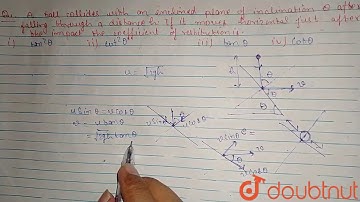 Q. A ball collides with an inclined plane of inclination θ after
falling through a distance h. If it moves horizontal just after
the impact the coefficient of restitution is.
i) tan²θ ii) cot²θ iii) tanθ iv) cotθ
u = √2gh
u sinθ = v cosθ
v = u tanθ
= √2gh tanθ
u
θ
v
h
v cosθ
doubtnut